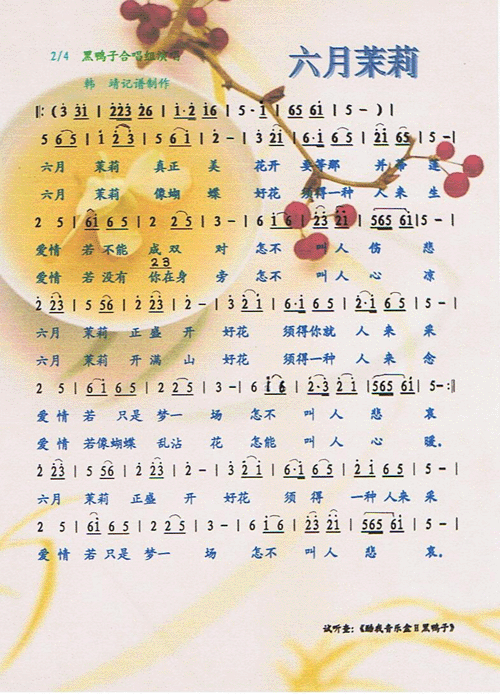 六月茉莉
2/4 黑鸭子合唱组演唱
韩 靖记谱制作
‖: ( 3 3i | 2223 26 | i·2 i6 | 5·i | 65 6i | 5 - ) |
5 65 | i 23 | 5 6i | 2 - | 3 2i | 6·i 65 | 2i 65 | 5 - |
六月 茉莉 真正 美 花开 要等那 并蒂莲
六月 茉莉 像蝴 蝶 好花 须得一种 人来生
2 5 | 6i 65 | 2 25 | 3 - | 6 i6 | 23 2i | 565 6i | 5 - |
爱情 若不能 成双 对 怎不 叫人伤悲
23
爱情 若没有 你在身 旁 怎不 叫人心凉
2 23 | 5 56 | 2 23 | 2 - | 3 2i | 6·i 65 | 2·i 65 | 5 - |
六月 茉莉 正盛 开 好花 须得你就 人来采
六月 茉莉 开满 山 好花 须得一种 人来念
2 5 | 6i 65 | 2 25 | 3 - | 6 i6 | 2·3 2i | 565 6i | 5 - :‖
爱情 若 只是 梦一 场 怎不 叫人 悲 哀
爱情 若像蝴蝶 乱沾 花 怎能 叫人 心 暖。
2 23 | 5 56 | 2 23 | 2 - | 3 2i | 6·i 65 | 2 i 65 | 5 - |
六月 茉莉 正盛 开 好花 须得 一种 人来采
2 5 | 6i 65 | 2 25 | 3 - | i6 | 23 2i | 565 6i | 5 - |
爱情 若只是 梦一 场 怎不 叫人 悲 哀。
试听查:《酷我音乐盒Ⅱ黑鸭子》